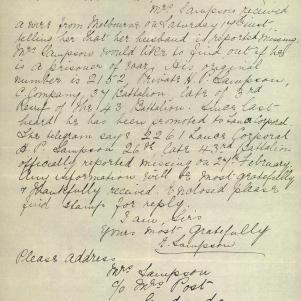 Mrs Sampson received
a wire from Melbourne on Saturday 14th inst
telling her that her husband is reported missing.
Mrs Sampson would like to find out if he
is a prisoner of war. His original
number is 2152. Private H. P. Sampson,
C Company, 37 Battalion late of 3rd
Reinf of the 43 Battalion. Since last
heard he has been promoted to Lance Corporal
The telegram says 2261 Lance Corporal
H. P. Sampson 26th late 43rd Battalion
officially reported missing on 27th February.
Any information will be most gratefully
& thankfully received. Enclosed please
find stamp for reply.
I am, Sirs
Yours most Gratefully
E. Sampson
Please Address
Mrs Sampson
c/o Mrs Post